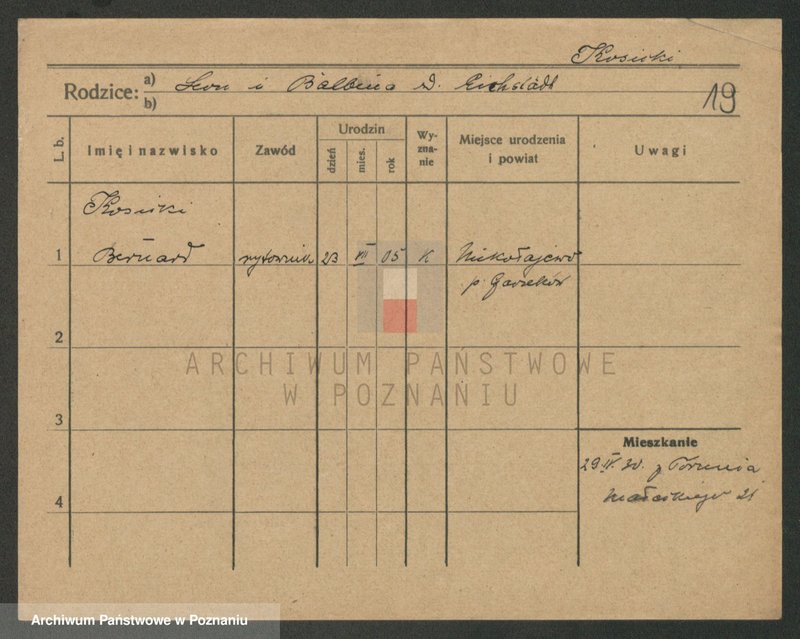 Kosicki
Rodzice: a) Leon i Balbina d. Eichstädt
b)
19
L. b. Imię i nazwisko Zawód Urodzin dzień mies. rok Wy-zna-nie Miejsce urodzenia i powiat Uwagi
Kosicki
1 Bernard rytownik 23 VII 05 K Mikołajewo
p.
2
ARCHIWUM PAŃSTWOWE
W POZNANIU
3
Mieszkanie
29 IV. 30. z Torunia
4 21
Archiwum Państwowe w Poznaniu